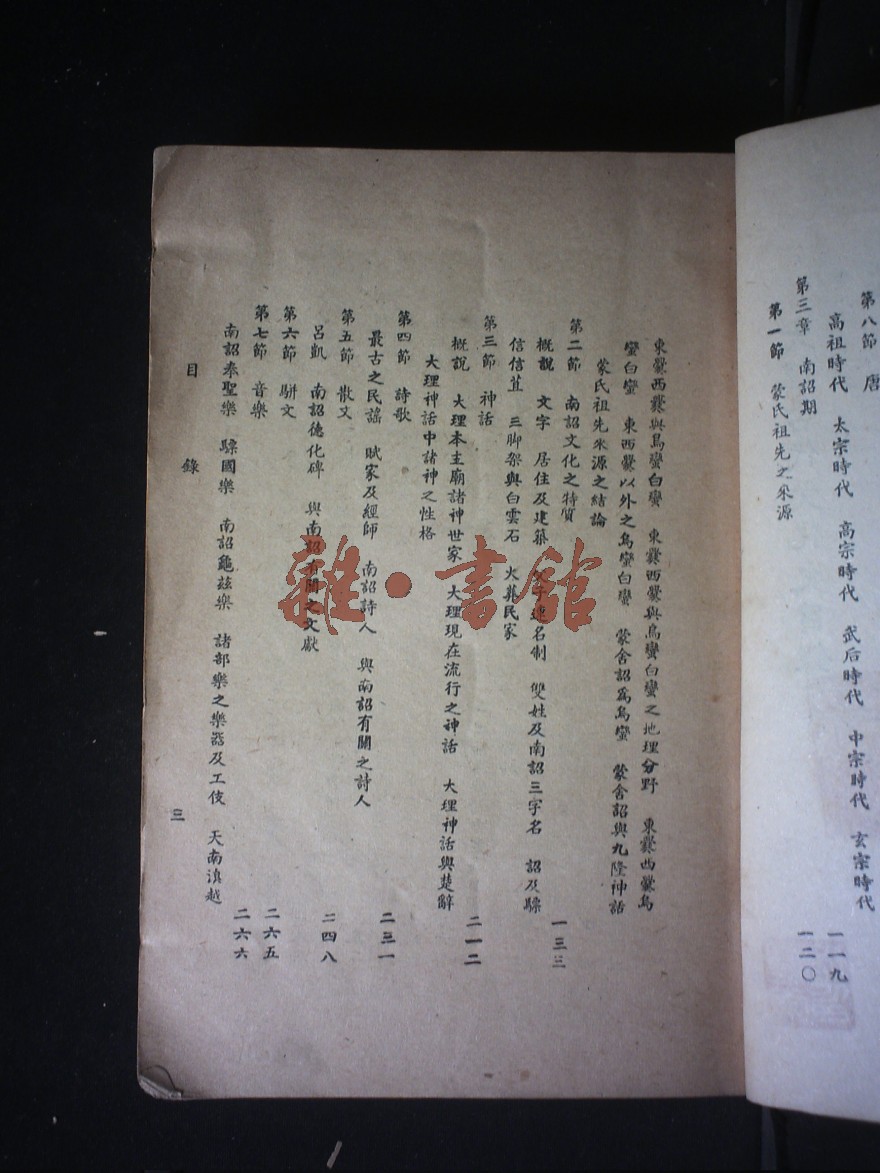 第八節 唐
高祖時代 太宗時代 高宗時代 武后時代 中宗時代 玄宗時代
第三章 南詔期 一一九
第一節 蒙氏祖先之來源 一二〇
東爨西爨與烏蠻白蠻 東爨西爨與烏蠻白蠻之地理分野 東爨西爨烏
蠻白蠻 東西爨以外之烏蠻白蠻 蒙舍詔爲烏蠻 蒙舍詔與九隆神話
蒙氏祖先來源之結論
第二節 南詔文化之特質 一三三
概說 文字 居住及建築 父子連名制 雙姓及南詔三字名 詔及驃
信信苴 三脚架與白雲石 火葬民家
第三節 神話 二一二
概說 大理本主廟諸神世家 大理現在流行之神話 大理神話與楚辭
大理神話中諸神之性格
第四節 詩歌 二三一
最古之民謠 賦家及經師 南詔詩人 與南詔有關之詩人
第五節 散文 二四八
呂凱 南詔德化碑 與南詔有關之文獻
第六節 駢文 二六五
第七節 音樂 二六六
南詔奉聖樂 驃國樂 南詔龜茲樂 諸部樂之樂器及工伎 天南滇越
目錄 三
雜·書館